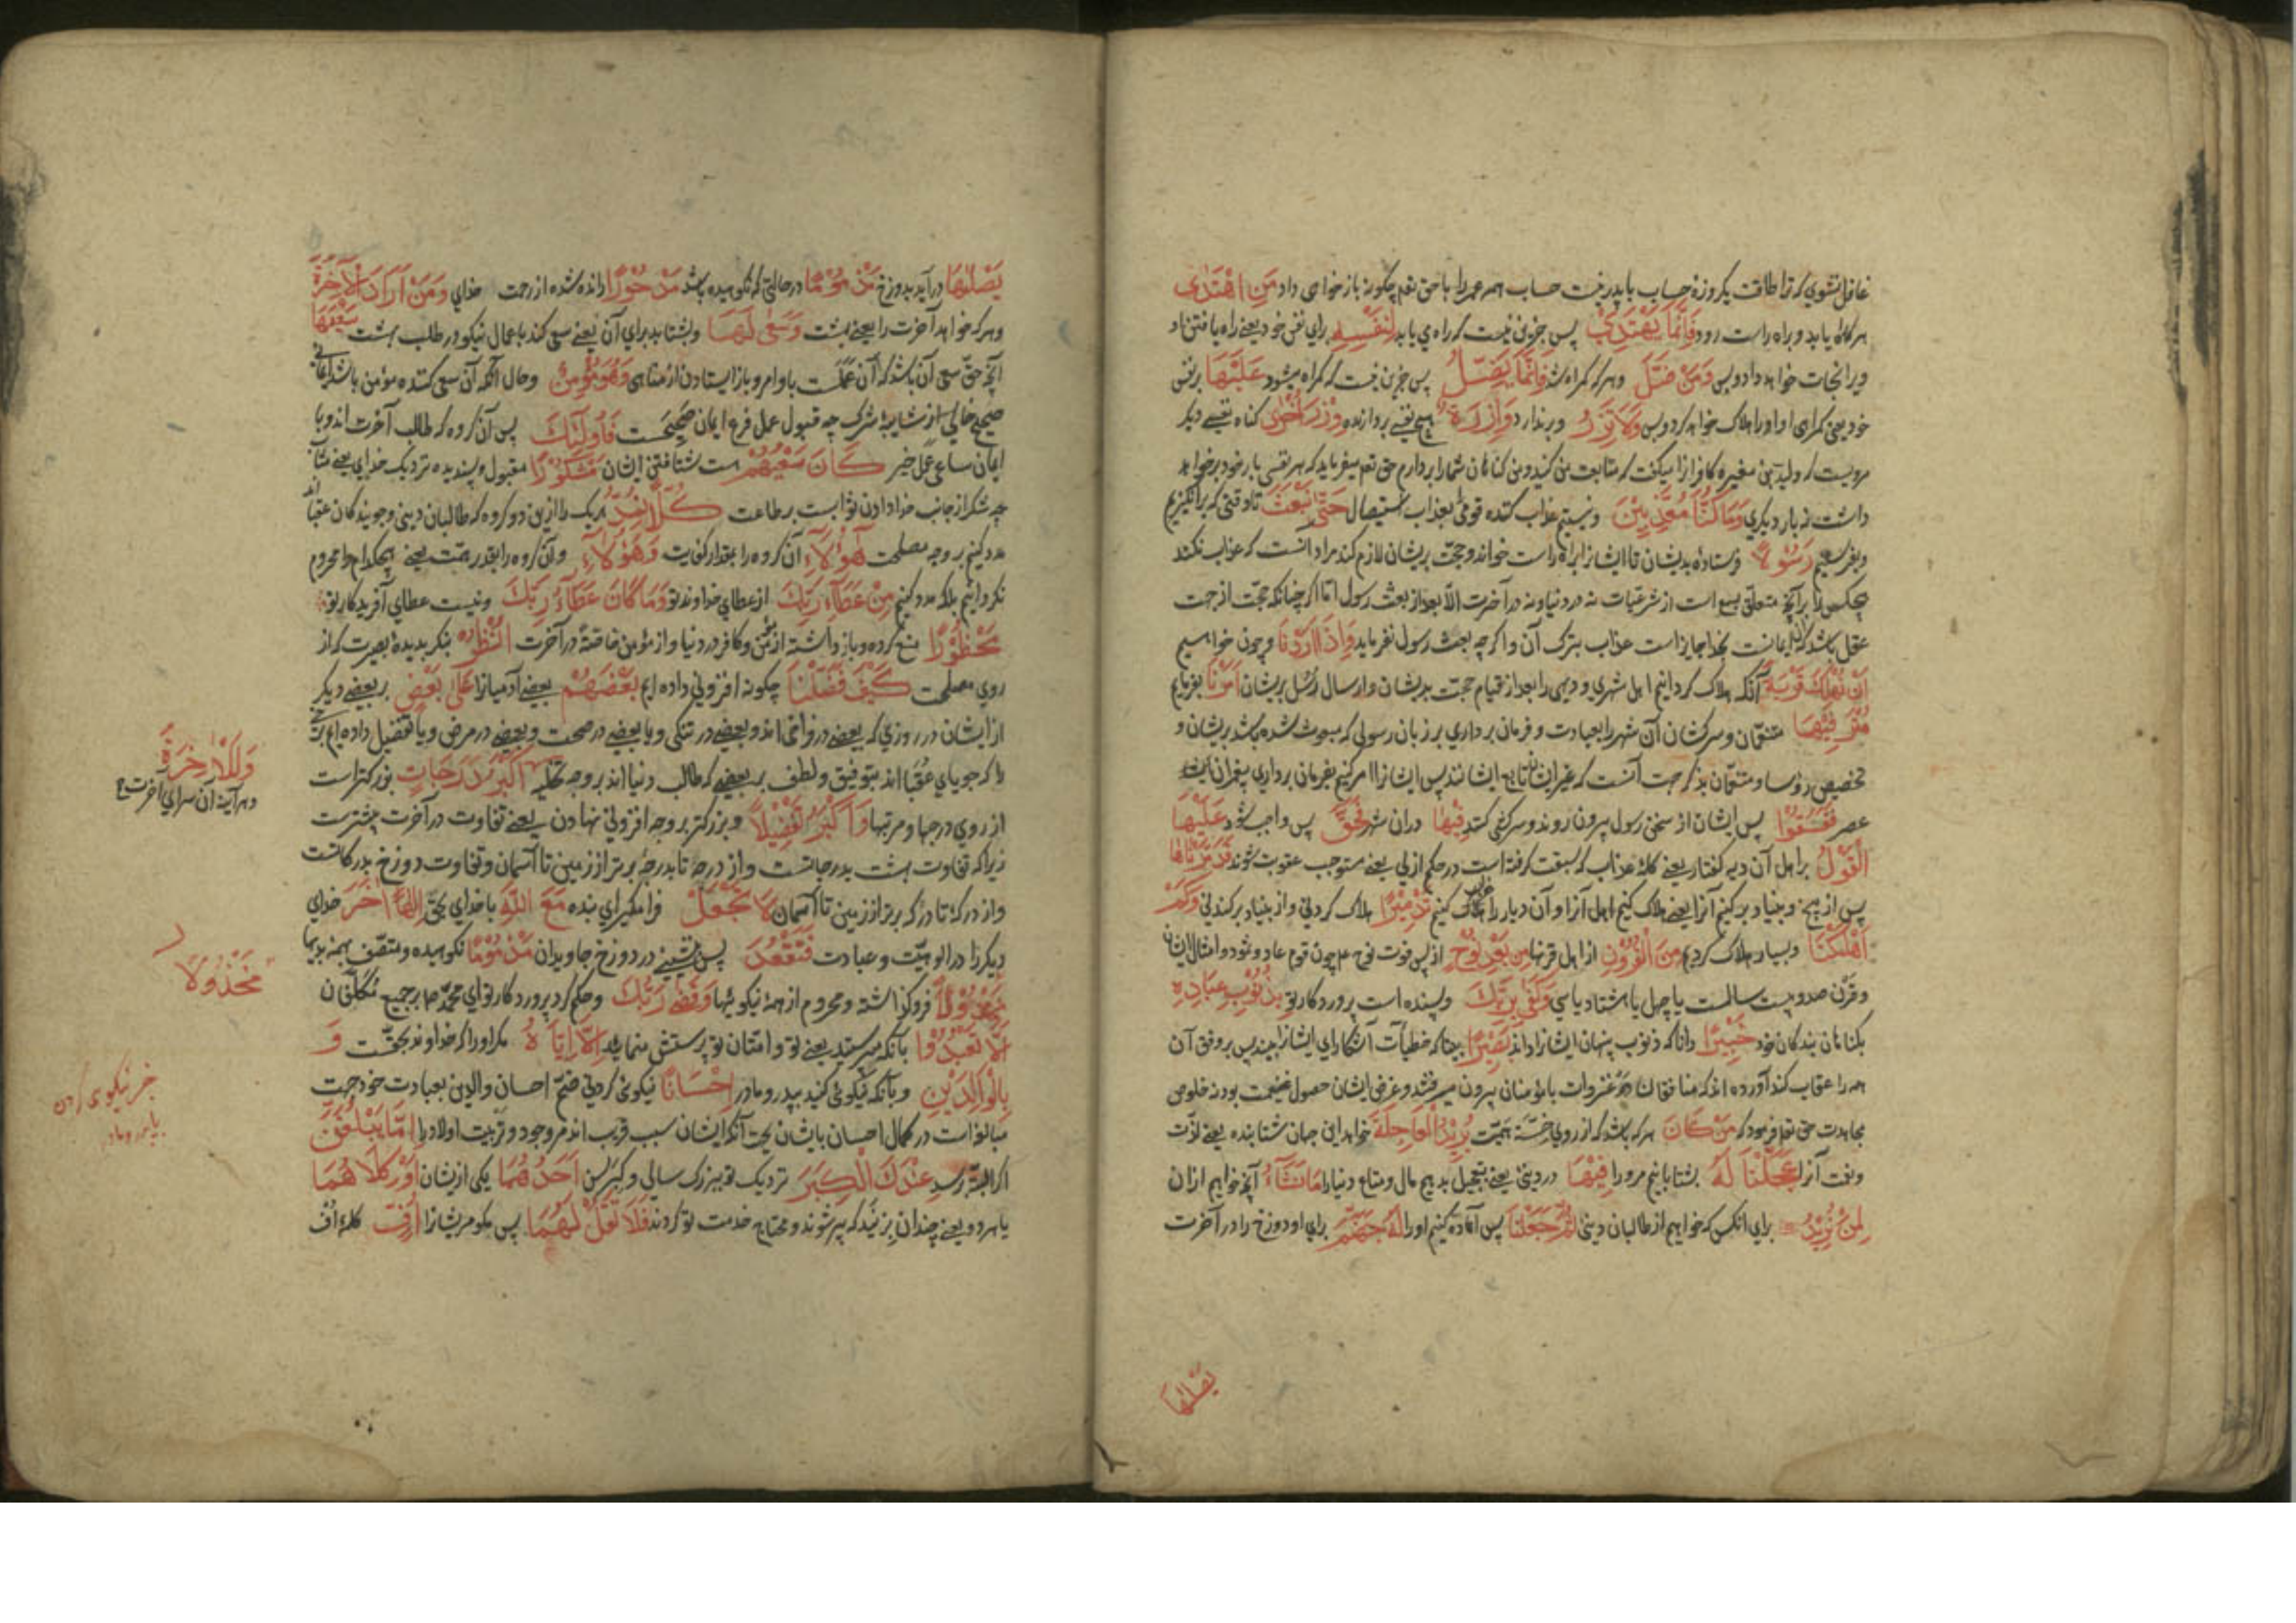 غافل نشوي كه ترا طاقت يكروزه حساب بايد رفت حساب همه عمر را با حق تعم چكونه باز خواهي داد مَنِ اهْتَدٰى
هركه راه يابد و براه راست رود فَاِنَّمَا يَهْتَدِيْ پس جزين نيست كه راه مي يابد لِنَفْسِهِ براي نفس خود يعنے راه يافتن او
ويرا نجات خواهد داد و بس وَمَنْ ضَلَّ و هركه كمراه شد فَاِنَّمَا يَضِلُّ پس جزين نيست كه كمراه ميشود عَلَيْهَا برنفس
خود يعني كمراهى او او را هلاك خواهد كرد و بس وَلَا تَزِرُ و برندارد وَازِرَةٌ هيچ نفسے بردارنده وِزْرَ اُخْرٰى كناه نفسے ديكر
مرويست كه وليد بن مغيره كافرانرا ميكفت كه متابعت من كنيد و من كناهان شما را بردارم حق تعم ميفرمايد كه هر نفسى بار خود برخواهد
داشت نه بار ديكرى وَمَا كُنَّا مُعَذِّبِيْنَ و نيستيم عذاب كننده قومى بعذاب استيصال حَتّٰى نَبْعَثَ تا وقتى كه برانكيزيم
و بفرستيم رَسُوْلًا فرستاده بديشان تا ايشانرا براه راست خواند و حجت بريشان لازم كند مراد آنست كه عذاب نكند
هيچكس را برآنچه متعلق بسمع است از شرعيات نه در دنيا و نه در آخرت الا بعد از بعث رسول اما اكر چنانكه حجت از جهت
عقل باشد كه ايمانست بخدا جايز است عذاب بترك آن و اكرچه بعث رسول نفرمايد وَاِذَا اَرَدْنَا و چون خواهيم
اَنْ نُهْلِكَ قَرْيَةً آنكه هلاك كردانيم اهل شهري و ديهى را بعد از قيام حجت بديشان و ارسال رسل بريشان اَمَرْنَا بفرماييم
مُتْرَفِيْهَا متنعمان و سركشان آن شهر را بعبادت و فرمان برداري برزبان رسولى كه مبعوث شده باشد بريشان و
تخصيص رؤسا و متنعمان بذكر جهت آنست كه غير ايشان تابع ايشانند پس ايشانرا امر كنيم بفرمان برداري پيغمبران
عصر فَفَسَقُوْا پس ايشان از سخن رسول بيرون روند و سركشى كنند فِيْهَا دران شهر فَحَقَّ پس واجب شود عَلَيْهَا
الْقَوْلُ براهل آن ديه كفتار يعنے كلمه عذاب كه سبقت كرفته است در حكم ازلي يعنے مستوجب عقوبت شوند فَدَمَّرْنَاهَا
پس از بيخ و بنياد بركنيم آنرا يعنے هلاك كنيم اهل آنرا و آن ديار را خراب كنيم تَدْمِيْرًا هلاك كردني و از بنياد بركندني وَكَمْ
اَهْلَكْنَا و بسيار هلاك كرديم مِنَ الْقُرُوْنِ از اهل قرنها مِنْ بَعْدِ نُوْحٍ از پس فوت نوح عم چون قوم عاد و ثمود و امثال ايشان
و قرن صد و بيست سالست يا چهل يا هشتاد يا سي وَكَفٰى بِرَبِّكَ و بسنده است پروردكار تو بِذُنُوْبِ عِبَادِهِ
بكناهان بندكان خود خَبِيْرًا دانا كه ذنوب پنهان ايشانرا داند بَصِيْرًا بينا كه خطيآت آشكاراي ايشانرا بيند پس بروفق آن
همه را عقاب كند آورده اند كه منافقان در غزوات با مؤمنان بيرون ميرفتند و غرض ايشان حصول غنيمت بود نه خلوص
مجاهدت حق تعم فرمود كه مَنْ كَانَ هركه باشد كه از روي خسّت همّت يُرِيْدُ الْعَاجِلَةَ خواهد اين جهان شتابنده يعنے لذت
و نعت آنرا عَجَّلْنَا لَهُ بشتابانيم مرو را فِيْهَا در دنيى يعنے بتعجيل بدهيم مال و متاع دنيا را مَا نَشَآءُ آنچه خواهيم ازان
لِمَنْ نُرِيْدُ براي انكس كه خواهيم از طالبان دنيى ثُمَّ جَعَلْنَا پس آماده كنيم او را لَهُ جَهَنَّمَ براي او دوزخ را در آخرت
يَصْلٰهَا
يَصْلٰهَا درآيد بدوزخ مَذْمُوْمًا درحالتى كه نكوهيده باشد مَدْحُوْرًا رانده شده از رحمت خداي وَمَنْ اَرَادَ الْاٰخِرَةَ
و هركه خواهد آخرت را يعنے بهشت وَسَعٰى لَهَا و بشتابد براي آن يعنے سعى كند باعمال نيكو در طلب بهشت سَعْيَهَا
آنچه حق سعى آن باشد كه آن عملست باوامر و بازايستادن از مناهى وَهُوَ مُؤْمِنٌ و حال آنكه آن سعى كننده مؤمن باشد ايماني
صحيح خالى از شايبه شرك چه قبول عمل فرع ايمان صحيحست فَاُولٰٓئِكَ پس آن كروه كه طالب آخرت اند و با
ايمان ساعى عمل خير كَانَ سَعْيُهُمْ هست شتافتن ايشان مَشْكُوْرًا مقبول و پسنديده نزديك خداي يعنے مثاب
چه شكر از جانب خدا دادن ثوابست برطاعت كُلًّا نُمِدُّ هريك را ازين دو كروه كه طالبان دنيى و جويندكان عقبى اند
مدد كنيم بروجه مصلحت هٰٓؤُلَآءِ آن كروه را بمقدار كفايت وَهٰٓؤُلَآءِ و آن كروه را بقدر همت يعنے هيچكدام را محروم
نكردانيم بلكه مدد كنيم مِنْ عَطَآءِ رَبِّكَ از عطاي خداوند تو وَمَا كَانَ عَطَآءُ رَبِّكَ و نيست عطاي آفريدكار تو
مَحْظُوْرًا منع كرده و بازداشته از مؤمن و كافر در دنيا و از مؤمن خاصة در آخرت اُنْظُرْ بنكر بديده بصيرت كه از
روي مصلحت كَيْفَ فَضَّلْنَا چكونه افزوني داده ايم بَعْضَهُمْ بعضے آدميانرا عَلٰى بَعْضٍ بر بعضے ديكر
از ايشان در روزي كه بعضے در فراخى اند و بعضے در تنكى و يا بعضے در صحت و بعضے در مرض و يا تفضيل داده ايم
را كه جوياي عقبى اند بتوفيق و لطف بر بعضے كه طالب دنيا اند بروجه تخليه اَكْبَرُ دَرَجَاتٍ بزركتر است
از روي درجها و مرتبها وَاَكْبَرُ تَفْضِيْلًا و بزركتر بروجه افزوني نهادن يعنے تفاوت در آخرت بيشترست
زيرا كه تفاوت بهشت بدرجاتست و از درجه تا بدرجه برتر از زمين تا آسمان و تفاوت دوزخ بدركاتست
و از دركه تا دركه برتر از زمين تا آسمان لَا تَجْعَلْ فرا مكير اي بنده مَعَ اللّٰهِ با خداي بحق اِلٰهًا اٰخَرَ خداي
ديكر را در الوهيت و عبادت فَتَقْعُدَ پس بنشينے در دوزخ جاويدان مَذْمُوْمًا نكوهيده و متصف بهمه بديها
مَخْذُوْلًا فروكذاشته و محروم از همه نيكوئيها وَقَضٰى رَبُّكَ و حكم كرد پروردكار تو اي محمد صم بر جميع مكلفان
اَلَّا تَعْبُدُوْا بآنكه نپرستيد يعنے تو و امتان تو پرستش منماييد اِلَّا اِيَّاهُ مكر او را كه خداوند بحقست وَ
بِالْوَالِدَيْنِ و بآنكه نيكوئى كنيد بپدر و مادر اِحْسَانًا نيكوئى كردني ضمّ احسان والدين بعبادت خود جهت
مبالغه است در كمال احسان بايشان بجهت آنكه ايشان سبب قريب اند مر وجود و تربيت اولاد را اِمَّا يَبْلُغَنَّ
اكر البته رسد عِنْدَكَ الْكِبَرَ نزديك تو ببزرك سالي و كبر سن اَحَدُهُمَا يكى ازيشان اَوْ كِلَاهُمَا
يا هر دو يعنے چندان بزيند كه پير شوند و محتاج خدمت تو كردند فَلَا تَقُلْ لَهُمَا پس مكو مريشانرا اُفٍّ كلمه اف
وَلَلْاٰخِرَةُ
و هرآينه آن سراي آخرت
مَخْذُوْلًا
نيكوى كردن
بپدر و مادر